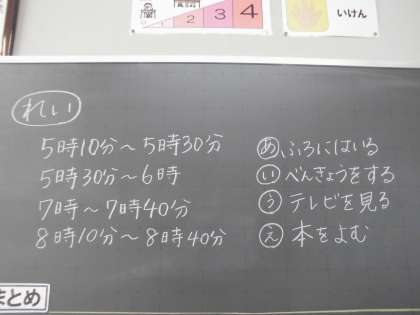 1 2 3 4
いけん
れい
5時10分～5時30分 あ ふろにはいる
5時30分～6時 い べんきょうをする
7時～7時40分 う テレビを見る
8時10分～8時40分 え 本をよむ
まとめ